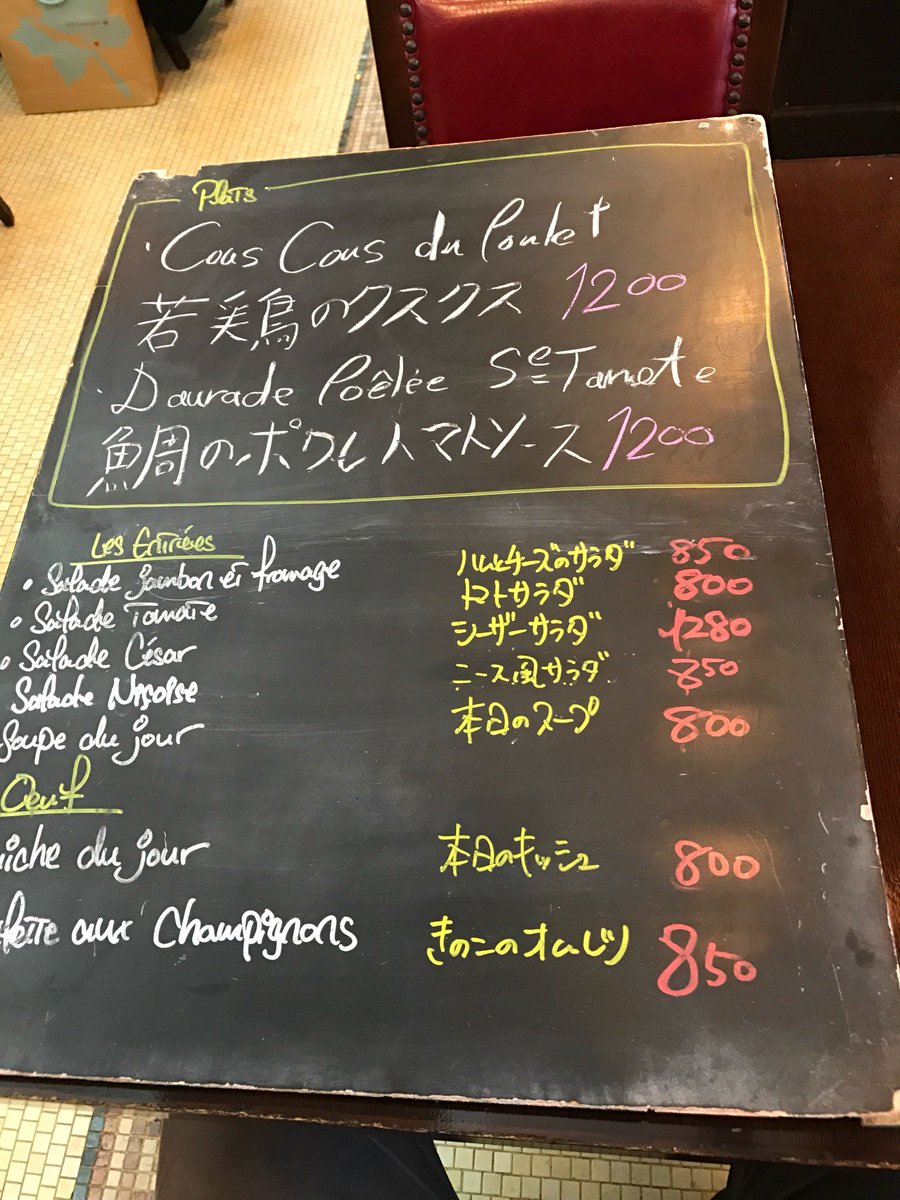 Plats
・Cous Cous du Poulet
若采鳥のクスクス 1200
・Daurade Poêlée Sce Tamote
鯛のポワレトマトソース 1200
Les Entrées
• Salade jambon et fromage ハムとチーズのサラダ 850
• Salade Tomate トマトサラダ 800
• Salade César シーザーサラダ 1280
Salade Niçoise ニース風サラダ 850
Soupe du jour 本日のスープ 800
Oeuf
iche du jour 本日のキッシュ 800
lette aux Champignons きのこのオムレツ 850